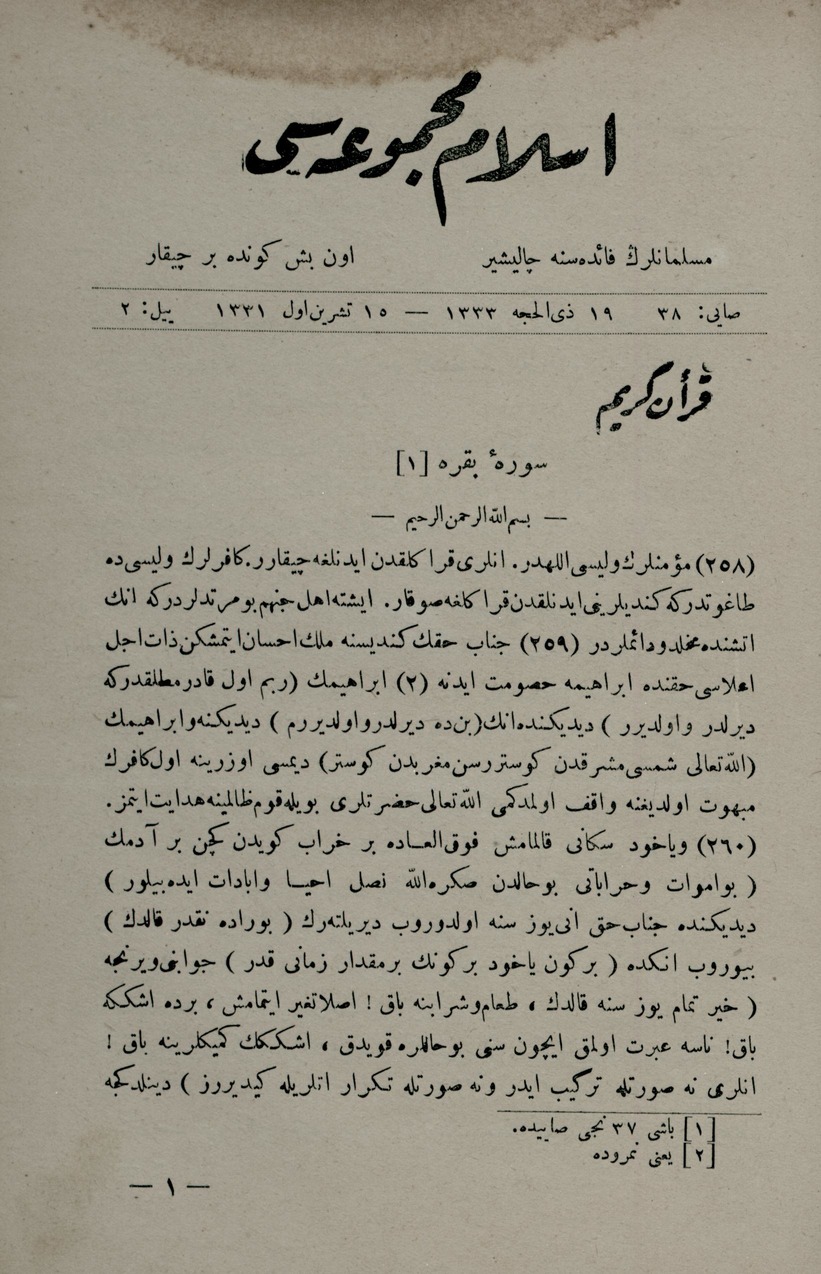 اسلام مجموعه‌سی
مسلمانلرڭ فائده‌سنه چالیشیر
اون بش كونده بر چیقار
صایی: ٣٨ ١٩ ذی‌الحجه ١٣٣٣ — ١٥ تشرین‌اول ١٣٣١ ییل: ٢
قرأن كریم
سورهٔ بقره [١]
— بسم‌الله‌الرحمن‌الرحیم —
(٢٥٨) مؤمنلرك ولیسی اللهدر. انلری قراكلقدن ایدنلغه چیقارر. كافرلرك ولیسی ده
طاغوتدركه كندیلرینی ایدنلقدن قراكلغه صوقار. ایشته اهل جنهم بو مرتدلردركه انك
اتشنده مخلد و دائملردر (٢٥٩) جناب حقك كندیسنه ملك احسان ایتمشكن ذات اجل
اعلاسی حقنده ابراهیمه حصومت ایدنه (٢) ابراهیمك (ربم اول قادر مطلقدركه
دیرلدر و اولدیرر ) دیدیكنده انك(بن ده دیرلدر و اولدیررم ) دیدیكنه و ابراهیمك
(الله تعالی شمسی مشرقدن كوستررسن مغربدن كوستر) دیمسی اوزرینه اول كافرك
مبهوت اولدیغنه واقف اولمدكمی الله تعالی حضرتلری بویله قوم ظالمینه هدایت ایتمز.
(٢٦٠) ویاخود سكانی قالمامش فوق‌العاده بر خراب كویدن كچن بر آدمك
( بو اموات وحراباتی بوحالدن صكره الله نصل احیا وابادات ایده‌بیلور )
دیدیكنده جناب حق انی یوز سنه اولدوروب دیریلته‌رك ( بوراده نقدر قالدك )
بیوروب انكده ( بركون یاخود بركونك برمقدار زمانی قدر ) جوابنی ویرنجه
( خیر تمام یوز سنه قالدك ، طعام وشرابنه باق ! اصلا تغیر ایتمامش ، برده اشككه
باق! ناسه عبرت اولمق ایچون سنی بوحاللره قویدق ، اشككك كمیكلرینه باق !
انلری نه صورتله تركیب ایدر ونه صورتله تكرار اتلریله كیدیررز ) دینلدكجه
[١] باشی ٣٧ نجی صاییده.
[٢] یعنی نمروده
— ١ —